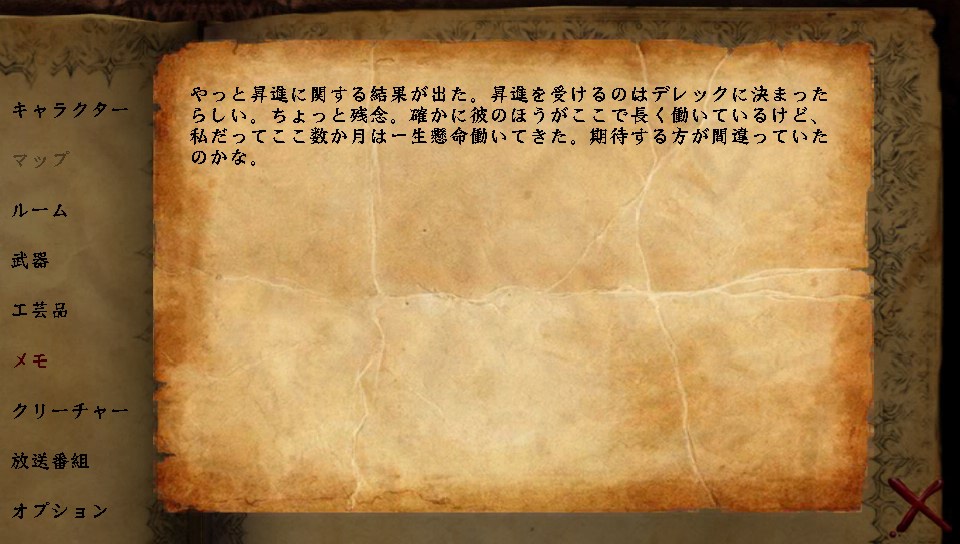 やっと昇進に関する結果が出た。昇進を受けるのはデレックに決まった
らしい。ちょっと残念。確かに彼のほうがここで長く働いているけど、
私だってここ数か月は一生懸命働いてきた。期待する方が間違っていた
のかな。
キャラクター
マップ
ルーム
武器
工芸品
メモ
クリーチャー
放送番組
オプション